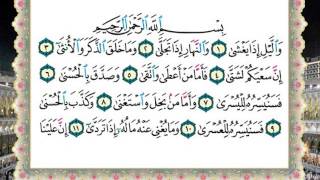 بِسْمِ اللَّهِ الرَّحْمَٰنِ الرَّحِيمِ
وَاللَّيْلِ إِذَا يَغْشَىٰ ١ وَالنَّهَارِ إِذَا تَجَلَّىٰ ٢ وَمَا خَلَقَ الذَّكَرَ وَالْأُنثَىٰ ٣
إِنَّ سَعْيَكُمْ لَشَتَّىٰ ٤ فَأَمَّا مَنْ أَعْطَىٰ وَاتَّقَىٰ ٥ وَصَدَّقَ بِالْحُسْنَىٰ
٦ فَسَنُيَسِّرُهُ لِلْيُسْرَىٰ ٧ وَأَمَّا مَن بَخِلَ وَاسْتَغْنَىٰ ٨ وَكَذَّبَ بِالْحُسْنَىٰ
٩ فَسَنُيَسِّرُهُ لِلْعُسْرَىٰ ١٠ وَمَا يُغْنِي عَنْهُ مَالُهُ إِذَا تَرَدَّىٰ ١١ إِنَّ عَلَيْنَا